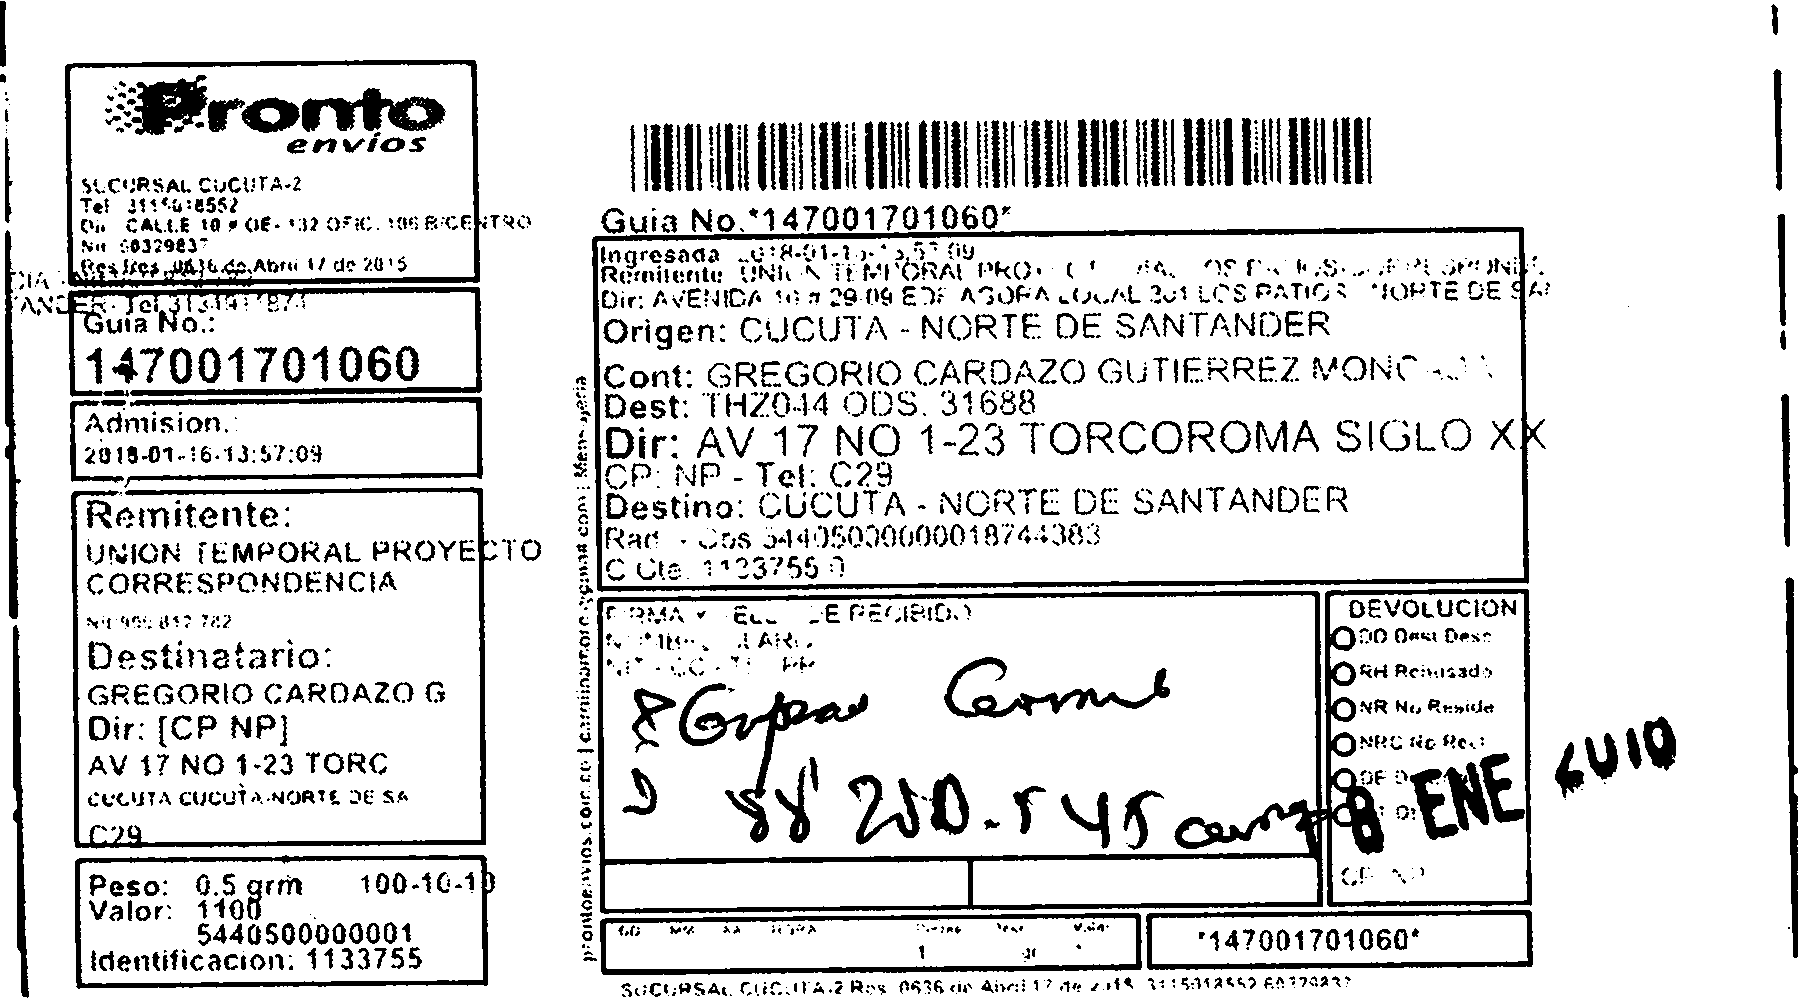 Pronto
envios
SUCURSAL CUCUTA-2
Tel: 3115018552
Dir: CALLE 10 # OE- 132 OFIC. 106 BICENTRO
Nit: 60329837
Res Ires. 0636 de Abril 17 de 2015
Guia No.:
147001701060
Admision.:
2018-01-16-13:57:09
Remitente:
UNION TEMPORAL PROYECTO
CORRESPONDENCIA
Destinatario:
GREGORIO CARDAZO G
Dir: [CP NP]
AV 17 NO 1-23 TORC
CUCUTA CUCUTA-NORTE DE SA
C29
Peso: 0.5 grm 100-10-10
Valor: 1100
5440500000001
Identificacion: 1133755
Guia No.*147001701060*
Ingresada
Remitente UNION TEMPORAL
Dir: AVENIDA 10 # 29-09 EDF AGORA LOCAL 201 LOS PATIOS NORTE DE SAN
Origen: CUCUTA - NORTE DE SANTANDER
Cont: GREGORIO CARDAZO GUTIERREZ
Dest: THZ044 ODS. 31688
Dir: AV 17 NO 1-23 TORCOROMA SIGLO XX
CP: NP - Tel: C29
Destino: CUCUTA - NORTE DE SANTANDER
Rad. - Obs 54405000000018744383
C Cta. 1133755 0
DE RECIBIDO
88' 250.545
DEVOLUCION
DD Dest Desc
RH Rehusado
NR No Reside
NRC No Recl
ENE
CP: NP
DD MM AA HORA
1 gr
*147001701060*
SUCURSAL CUCUTA-2 Res. 0636 de Abril 17 de 2015 3115018552 60329837